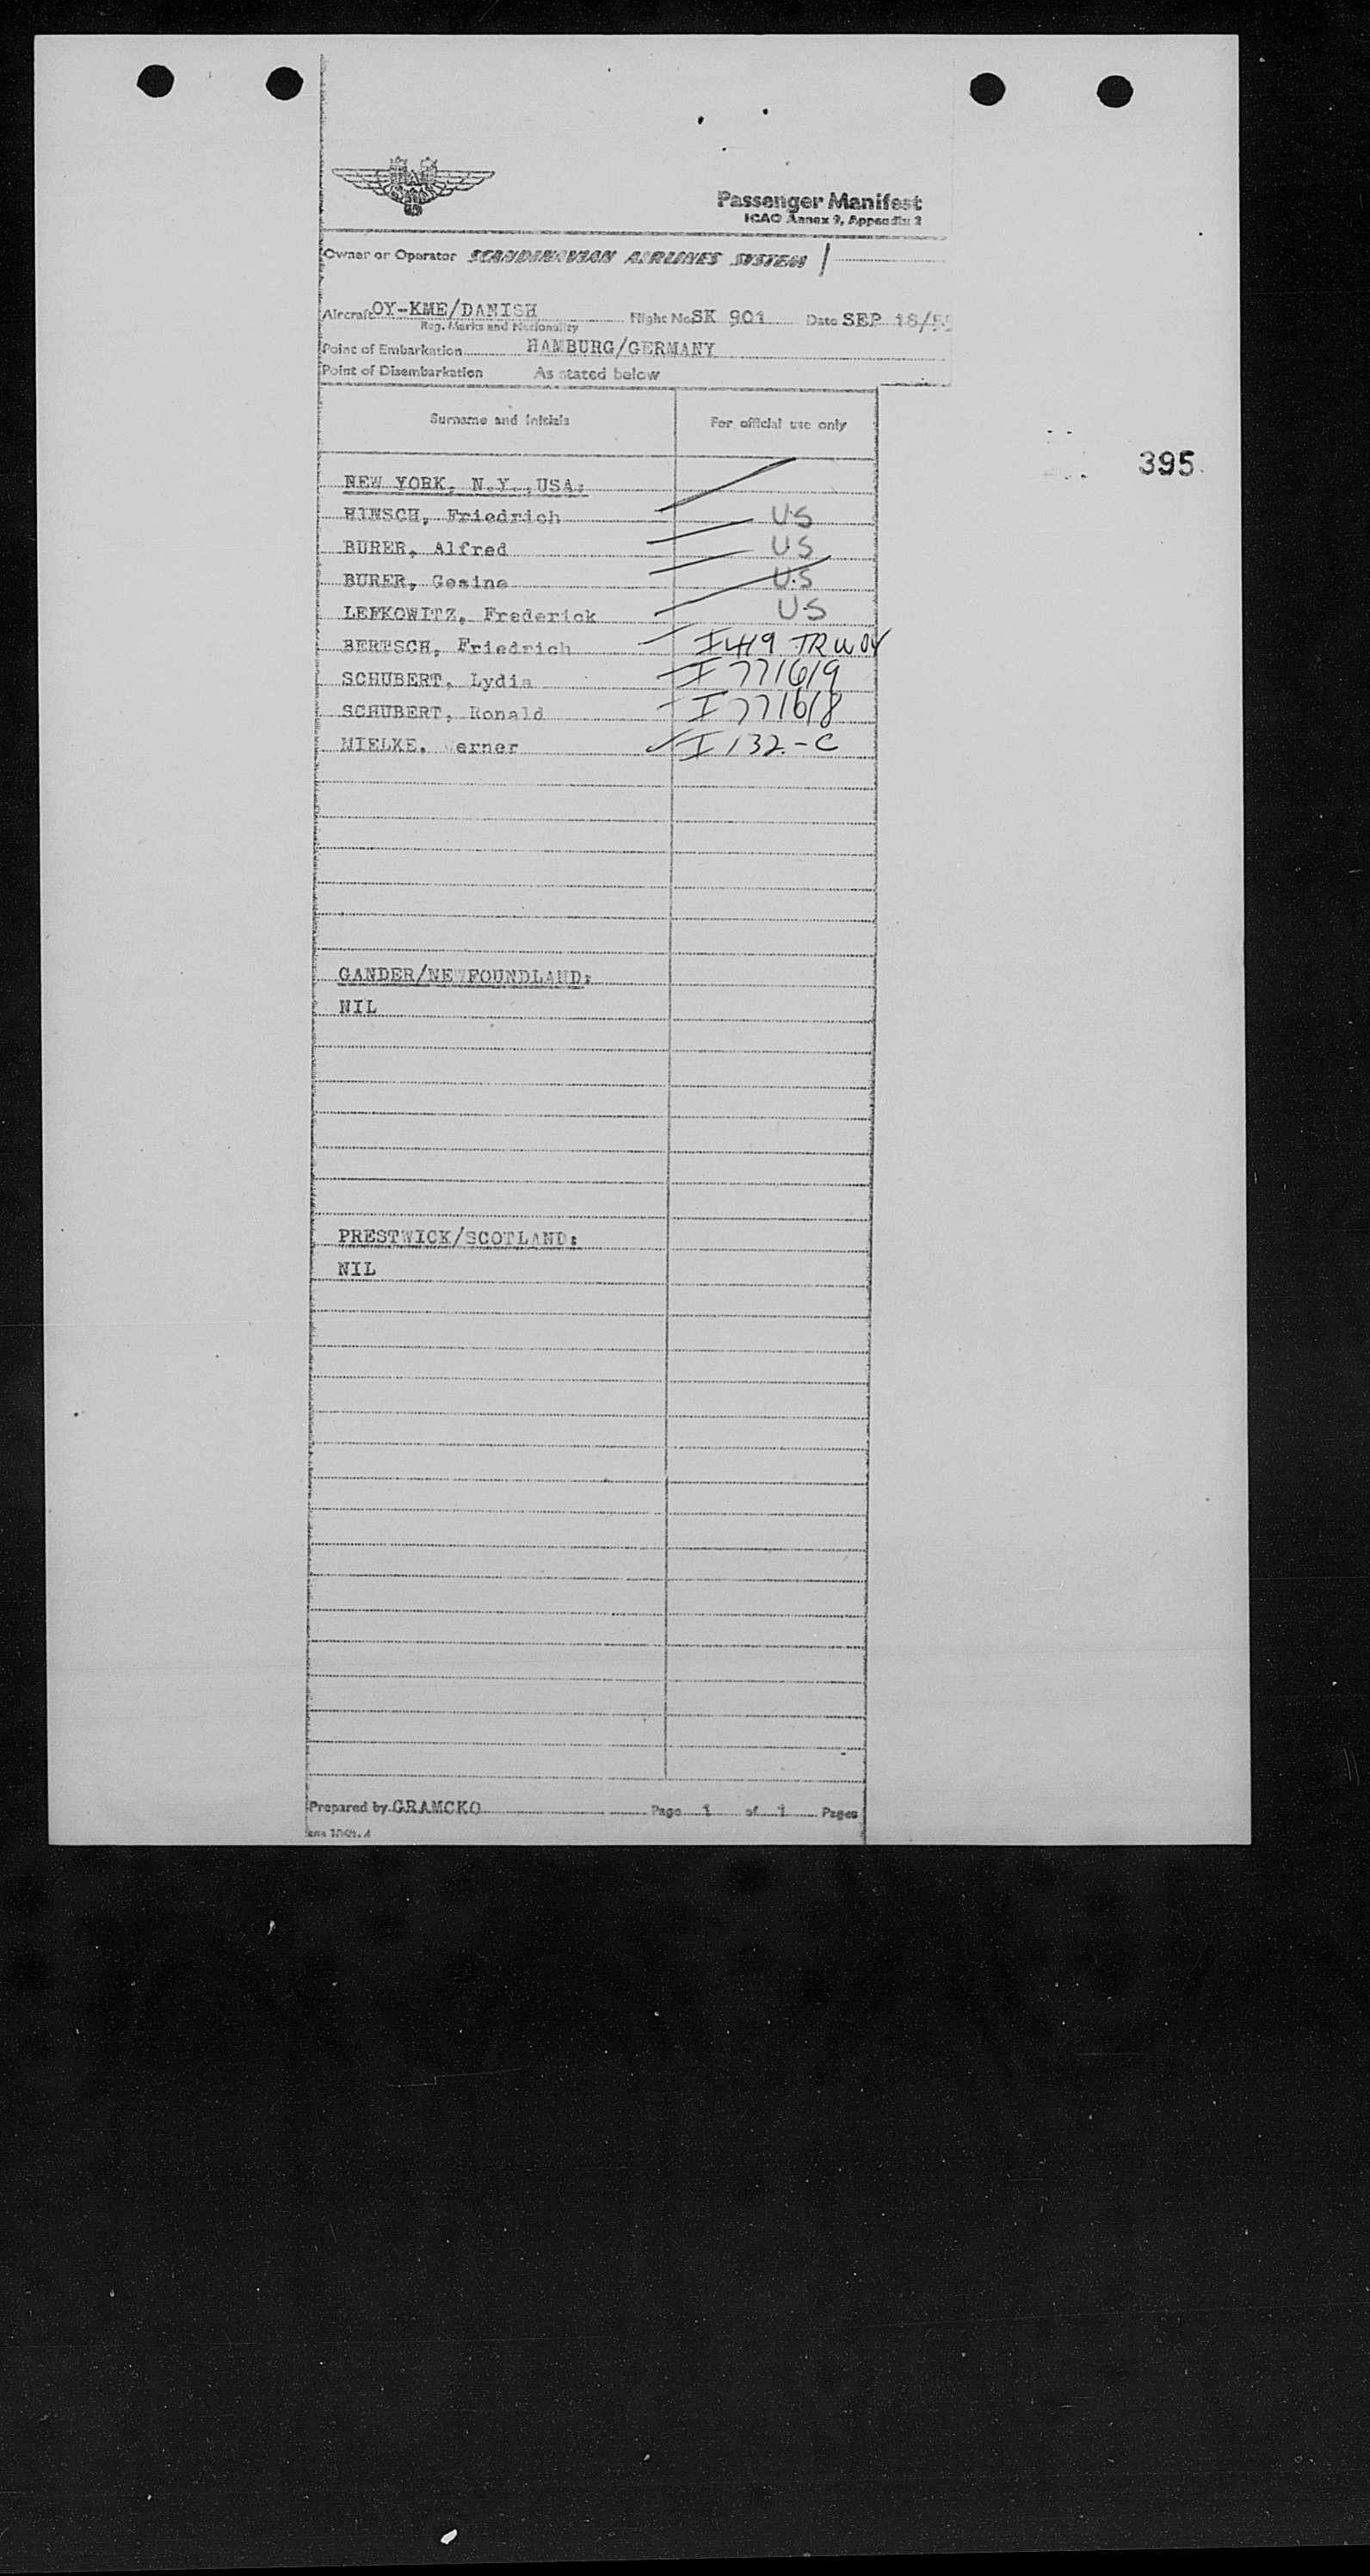 Passenger Manifest
ICAO Annex 9, Appendix 2
Owner or Operator SCANDINAVIAN AIRLINES SYSTEM
Aircraft OY-KME/DANISH Flight No SK 901 Date SEP 18/5
Reg. Marks and Nationality
Point of Embarkation HAMBURG/GERMANY
Point of Disembarkation As stated below
Surname and Initials For official use only
395
NEW YORK, N.Y.,USA:
HINSCH, Friedrich U.S
BURER, Alfred U.S
BURER, Gesine U.S
LEFKOWITZ, Frederick U.S
BERTSCH, Friedrich I 419 TR WOV
SCHUBERT, Lydia I 771619
SCHUBERT, Ronald I 771618
MIELKE, erner I 132-C
GANDER/NEWFOUNDLAND:
NIL
PRESTWICK/SCOTLAND:
NIL
Prepared by GRAMCKO Page 1 of 1 Pages